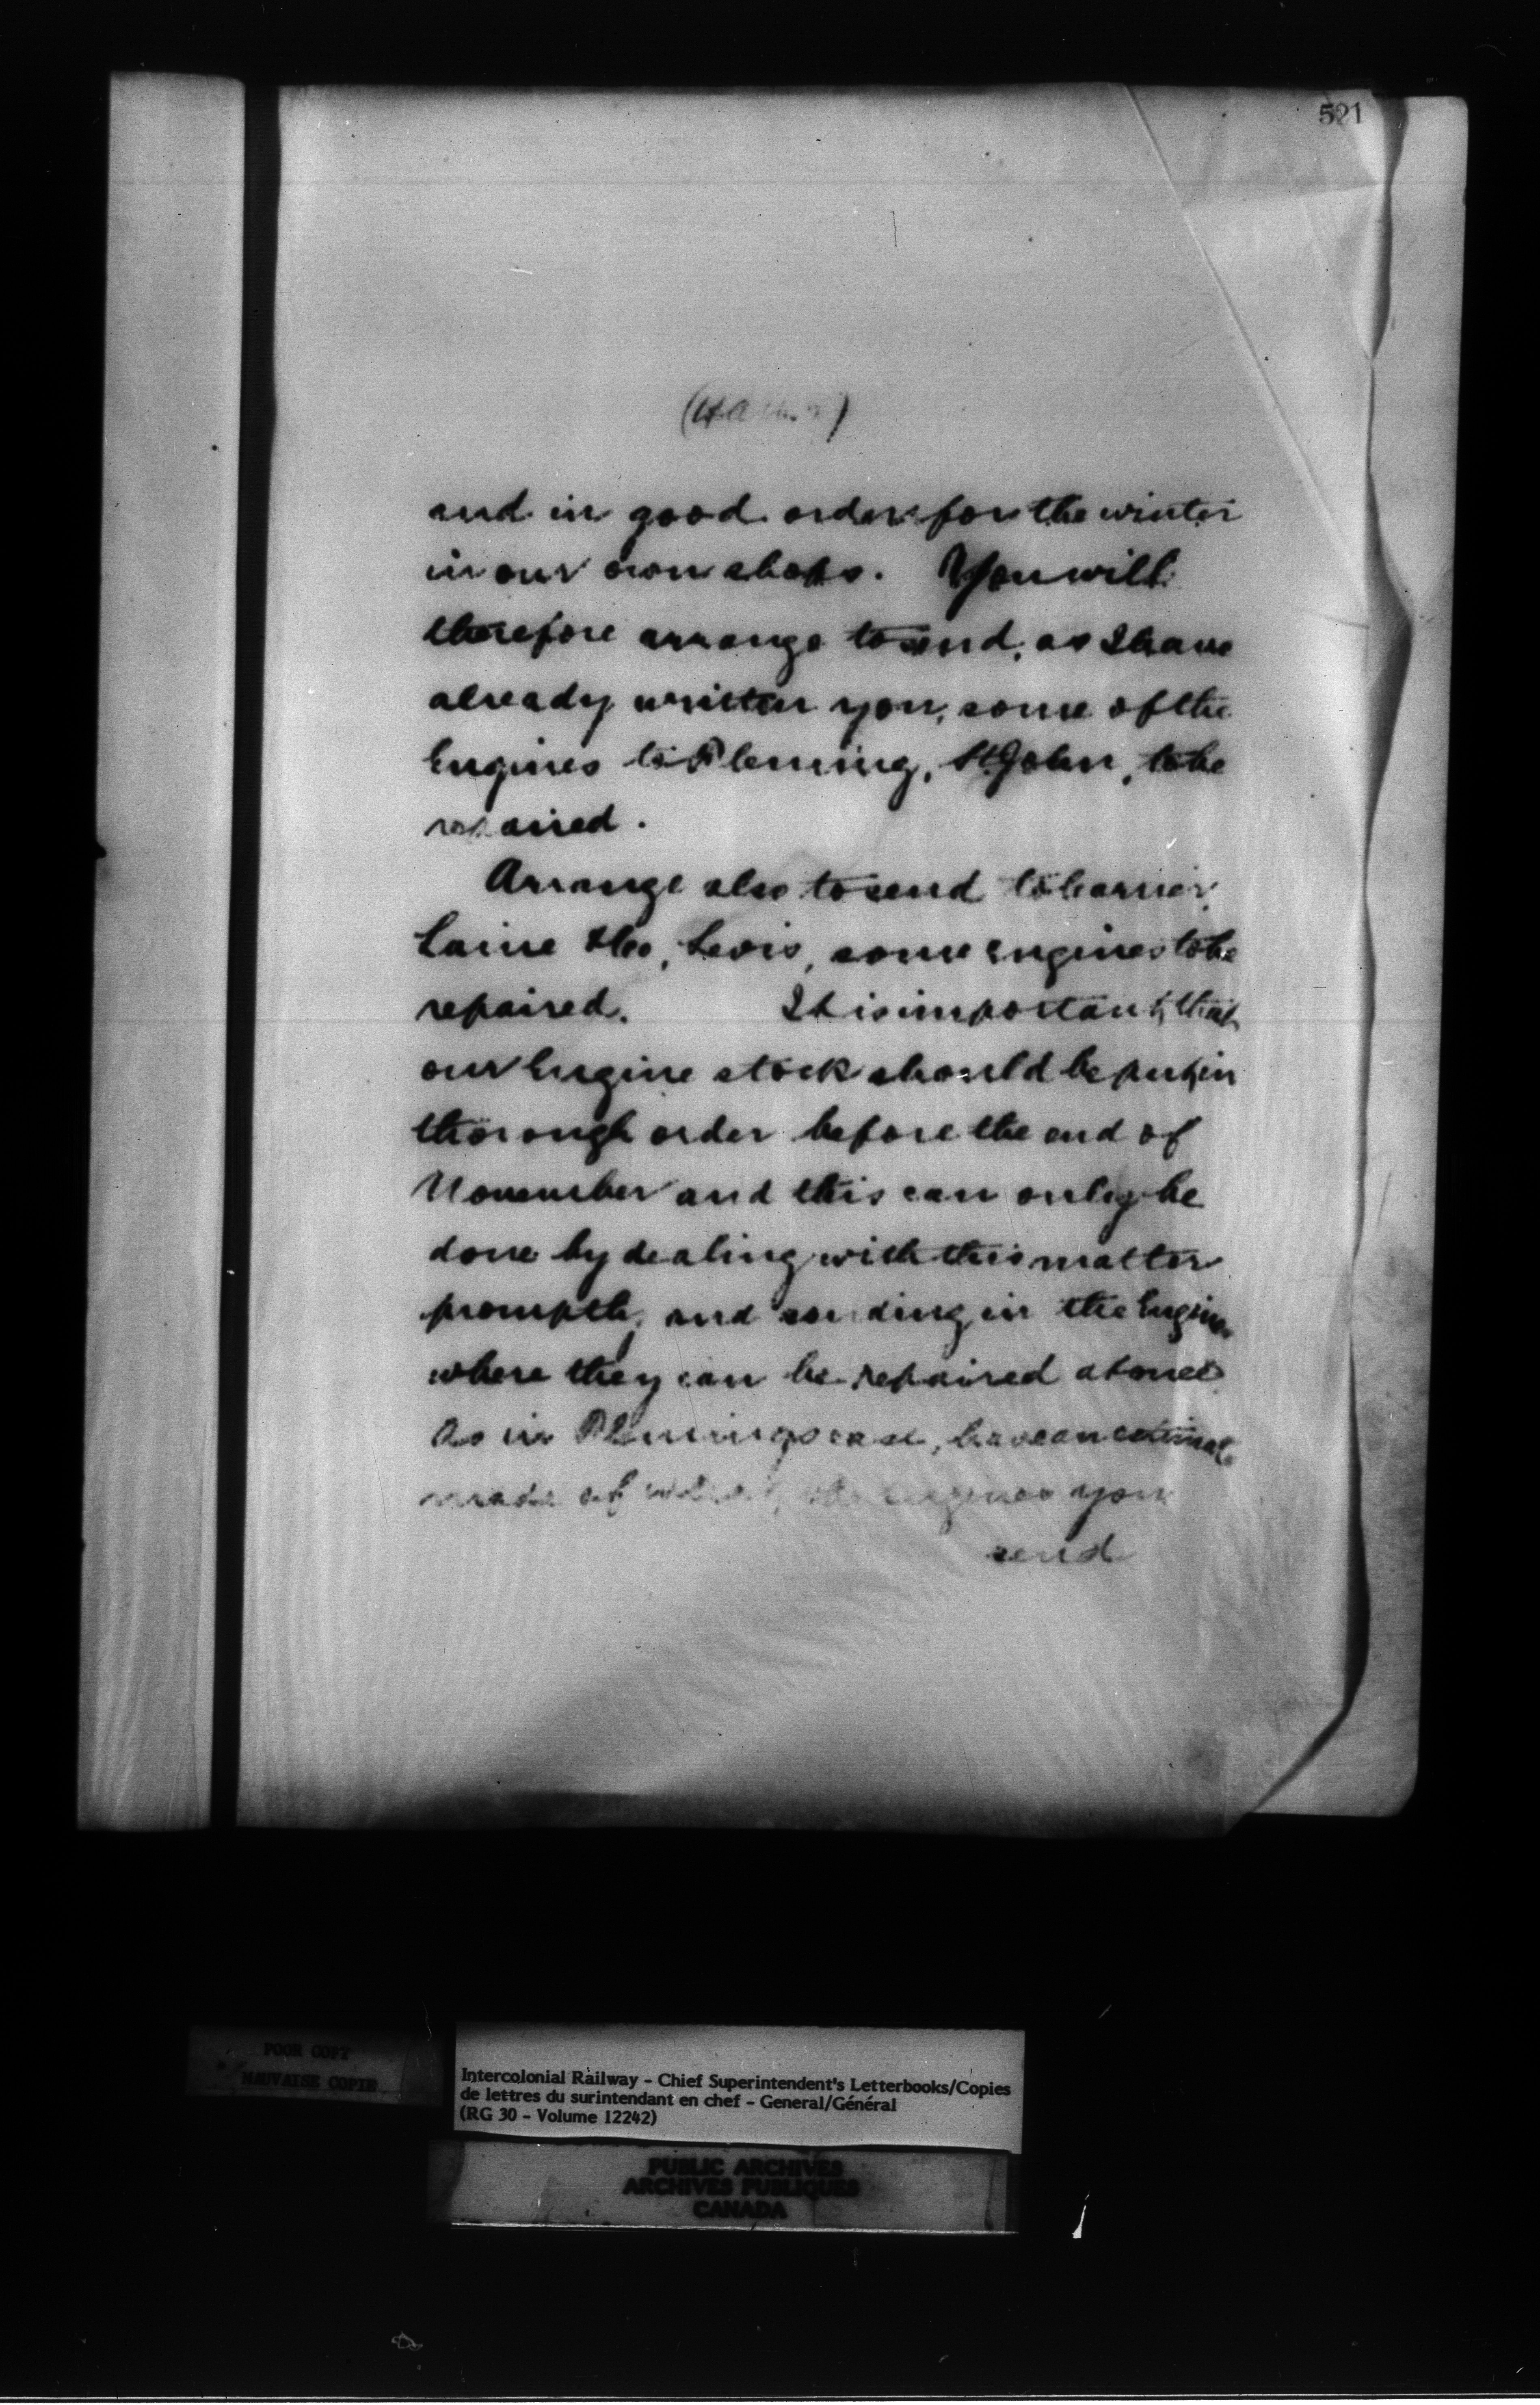 521
and in good order for the winter
in our own shops. You will
therefore arrange to send, as I have
already written you, some of the
Engines to Fleming, St. John, to be
repaired.
Arrange also to send to Carrier,
Laine & Co, Levis, some Engines to be
repaired. It is important that
our Engine stock should be put in
thorough order before the end of
November and this can only be
done by dealing with this matter
promptly, and sending in the Engines
where they can be repaired at once
As in Flemings case, have an estimate
made of the engines you
send
POOR COPY
MAUVAISE COPIE
Intercolonial Railway - Chief Superintendent's Letterbooks/Copies
de lettres du surintendant en chef - General/Général
(RG 30 - Volume 12242)
PUBLIC ARCHIVES
ARCHIVES PUBLIQUES
CANADA